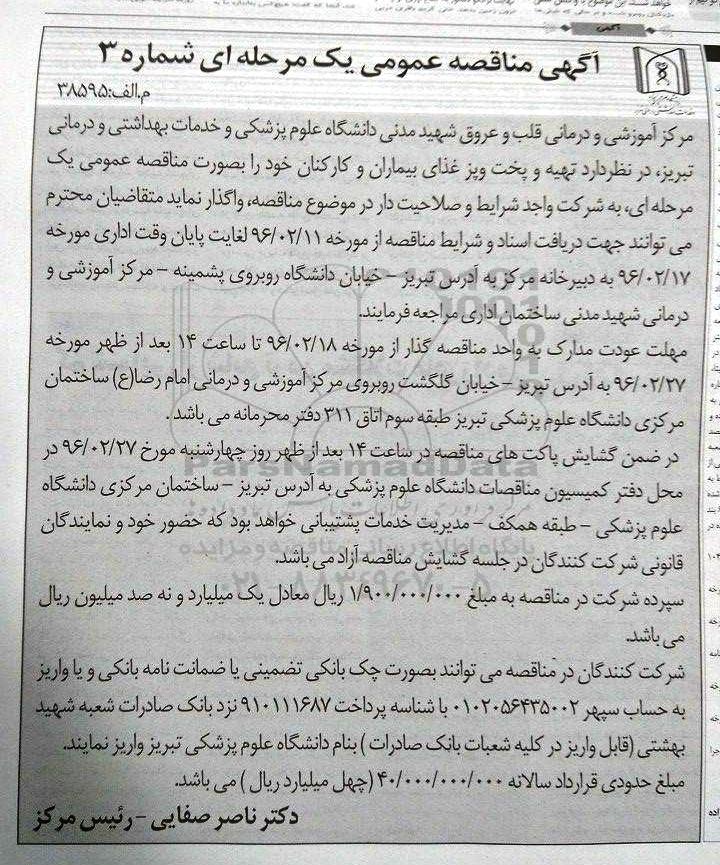 آگهی
آگهی مناقصه عمومی یک مرحله ای شماره ۳
م.الف:۳۸۵۹۵
مرکز آموزشی و درمانی قلب و عروق شهید مدنی دانشگاه علوم پزشکی و خدمات بهداشتی و درمانی
تبریز، در نظر دارد تهیه و پخت وپز غذای بیماران و کارکنان خود را بصورت مناقصه عمومی یک
مرحله ای، به شرکت واجد شرایط و صلاحیت دار در موضوع مناقصه، واگذار نماید متقاضیان محترم
می توانند جهت دریافت اسناد و شرایط مناقصه از مورخه ۹۶/۰۲/۱۱ لغایت پایان وقت اداری مورخه
۹۶/۰۲/۱۷ به دبیرخانه مرکز به آدرس تبریز - خیابان دانشگاه روبروی پشمینه - مرکز آموزشی و
درمانی شهید مدنی ساختمان اداری مراجعه فرمایند.
مهلت عودت مدارک به واحد مناقصه گذار از مورخه ۹۶/۰۲/۱۸ تا ساعت ۱۴ بعد از ظهر مورخه
۹۶/۰۲/۲۷ به آدرس تبریز - خیابان گلگشت روبروی مرکز آموزشی و درمانی امام رضا(ع) ساختمان
مرکزی دانشگاه علوم پزشکی تبریز طبقه سوم اتاق ۳۱۱ دفتر محرمانه می باشد.
در ضمن گشایش پاکت های مناقصه در ساعت ۱۴ بعد از ظهر روز چهارشنبه مورخ ۹۶/۰۲/۲۷ در
ParsNamadData
محل دفتر کمیسیون مناقصات دانشگاه علوم پزشکی به آدرس تبریز - ساختمان مرکزی دانشگاه
علوم پزشکی - طبقه همکف - مدیریت خدمات پشتیبانی خواهد بود که حضور خود و نمایندگان
قانونی شرکت کنندگان در جلسه گشایش مناقصه آزاد می باشد.
۰۲۱-۸۸۳۴۹۶۷۰-۵
سپرده شرکت در مناقصه به مبلغ ۱/۹۰۰/۰۰۰/۰۰۰ ریال معادل یک میلیارد و نه صد میلیون ریال
می باشد.
شرکت کنندگان در مناقصه می توانند بصورت چک بانکی تضمینی یا ضمانت نامه بانکی و یا واریز
به حساب سپهر ۰۱۰۲۰۵۶۴۳۵۰۰۲ با شناسه پرداخت ۹۱۰۱۱۱۶۸۷ نزد بانک صادرات شعبه شهید
بهشتی (قابل واریز در کلیه شعبات بانک صادرات ) بنام دانشگاه علوم پزشکی تبریز واریز نمایند.
مبلغ حدودی قرارداد سالانه ۴۰/۰۰۰/۰۰۰/۰۰۰ (چهل میلیارد ریال ) می باشد.
دکتر ناصر صفایی - رئیس مرکز